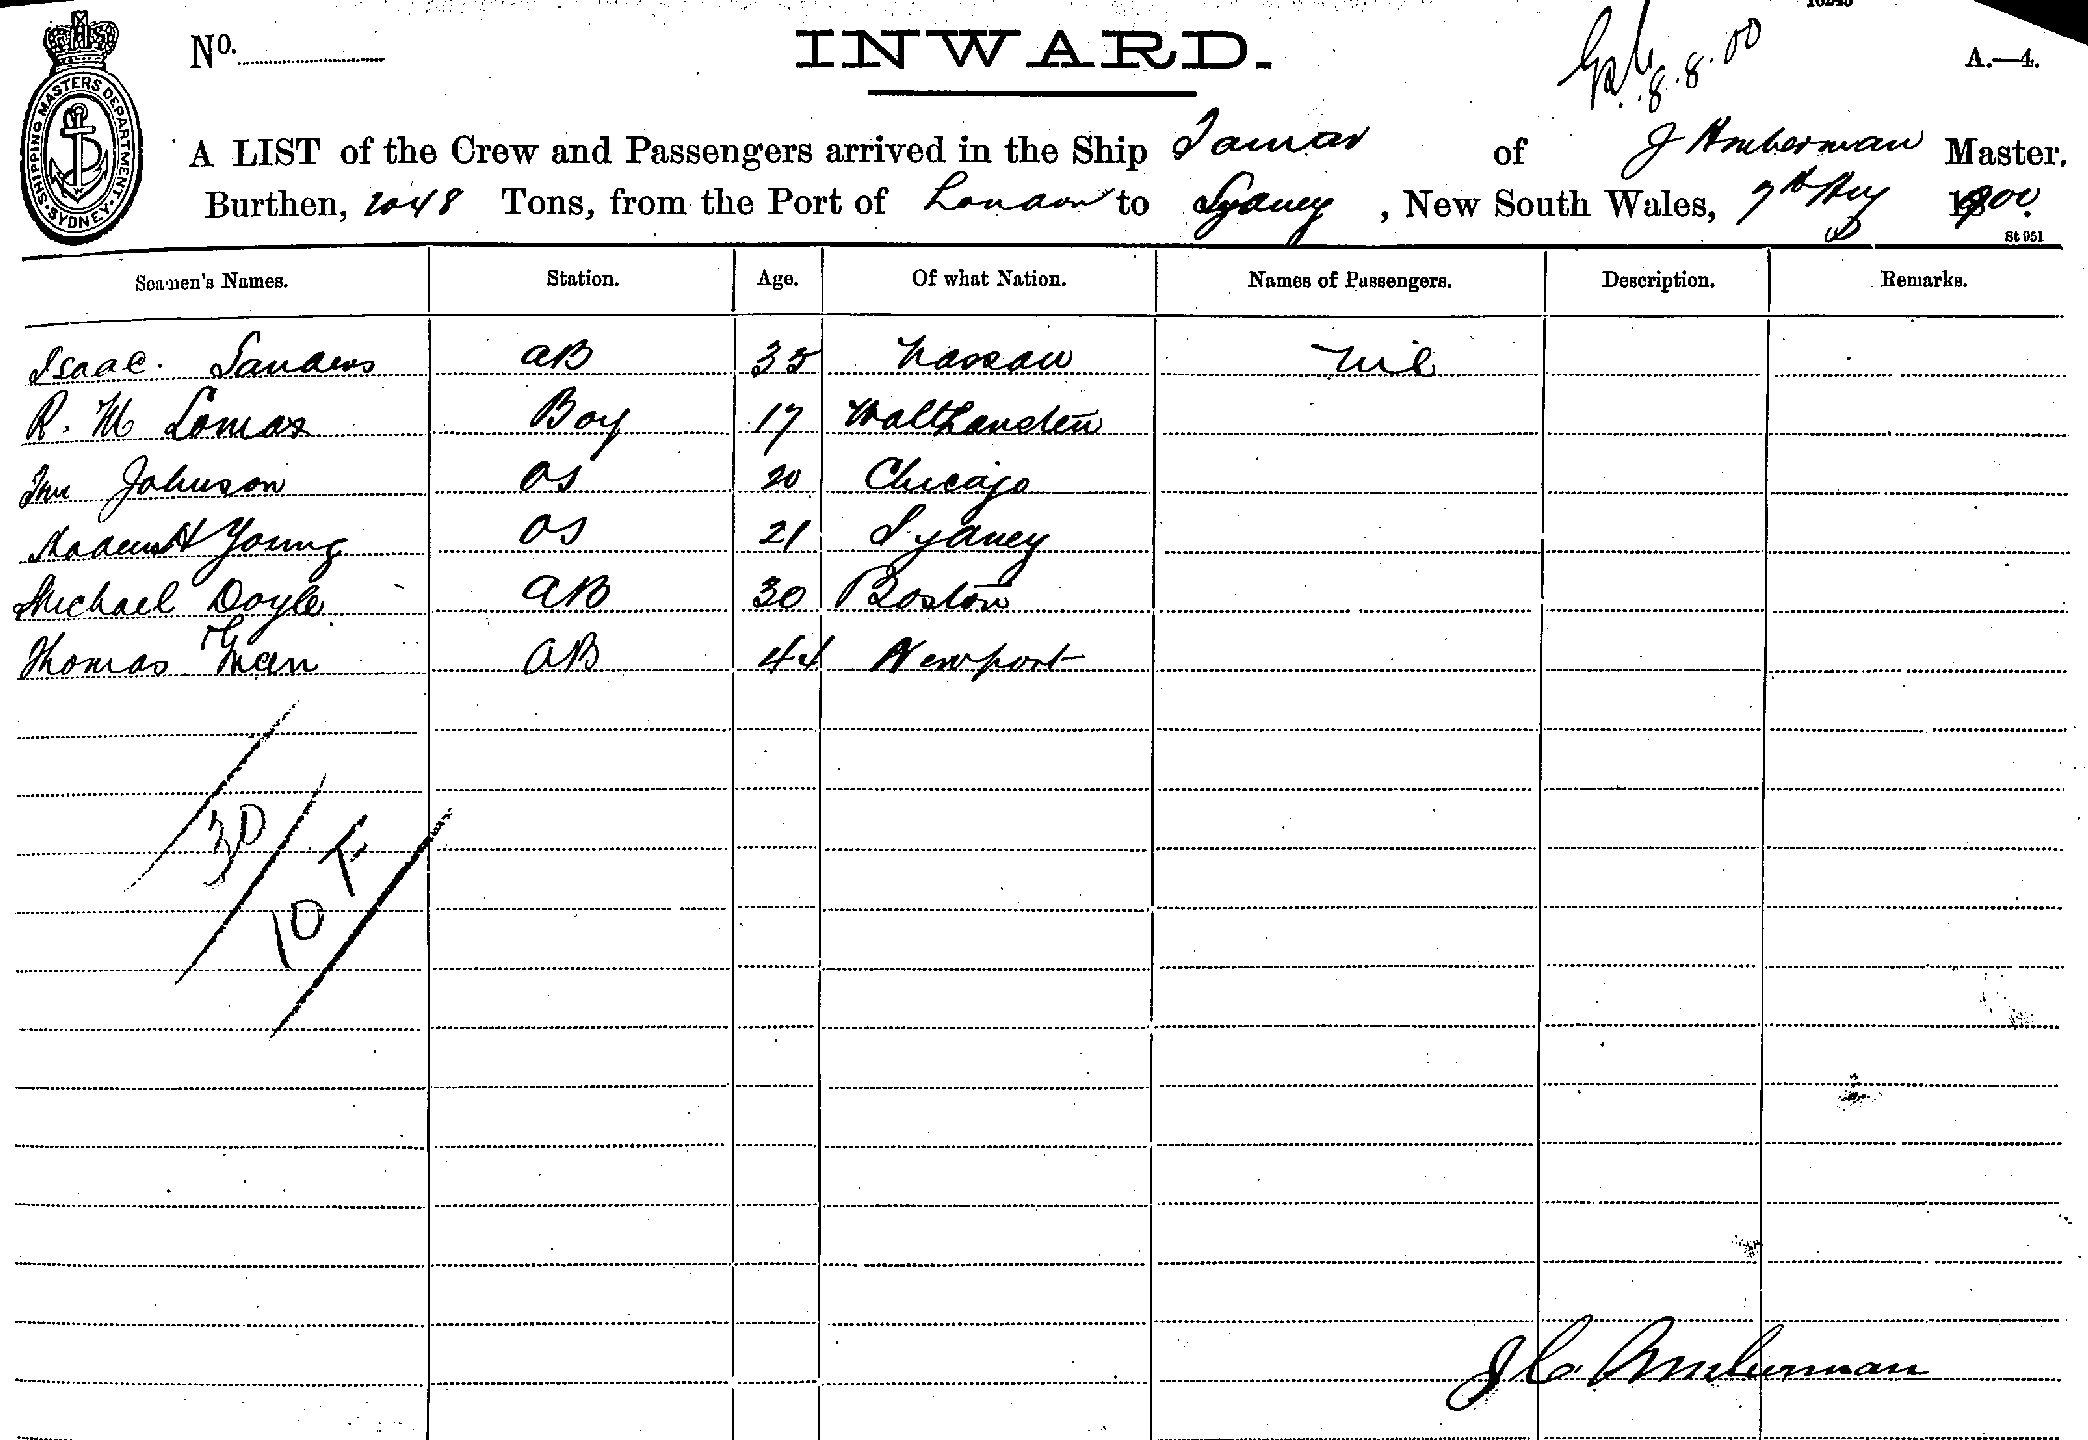 No.
INWARD.
8.8.00
A.—4.
SHIPPING MASTERS DEPARTMENT. SYDNEY.
A LIST of the Crew and Passengers arrived in the Ship Tamar of J Amberman Master.
Burthen, 2048 Tons, from the Port of London to Sydney, New South Wales, 7th Aug 1900.
St 951
Seamen's Names. Station. Age. Of what Nation. Names of Passengers. Description. Remarks.
Isaac Sanders AB 35 Nassau Nil
R. M Lomas Boy 17 Walthamsten
Johnson OS 20 Chicago
Young OS 21 Sydney
Michael Doyle AB 30 Boston
Thomas AB 44 Newport
30
10 F
J C Amberman